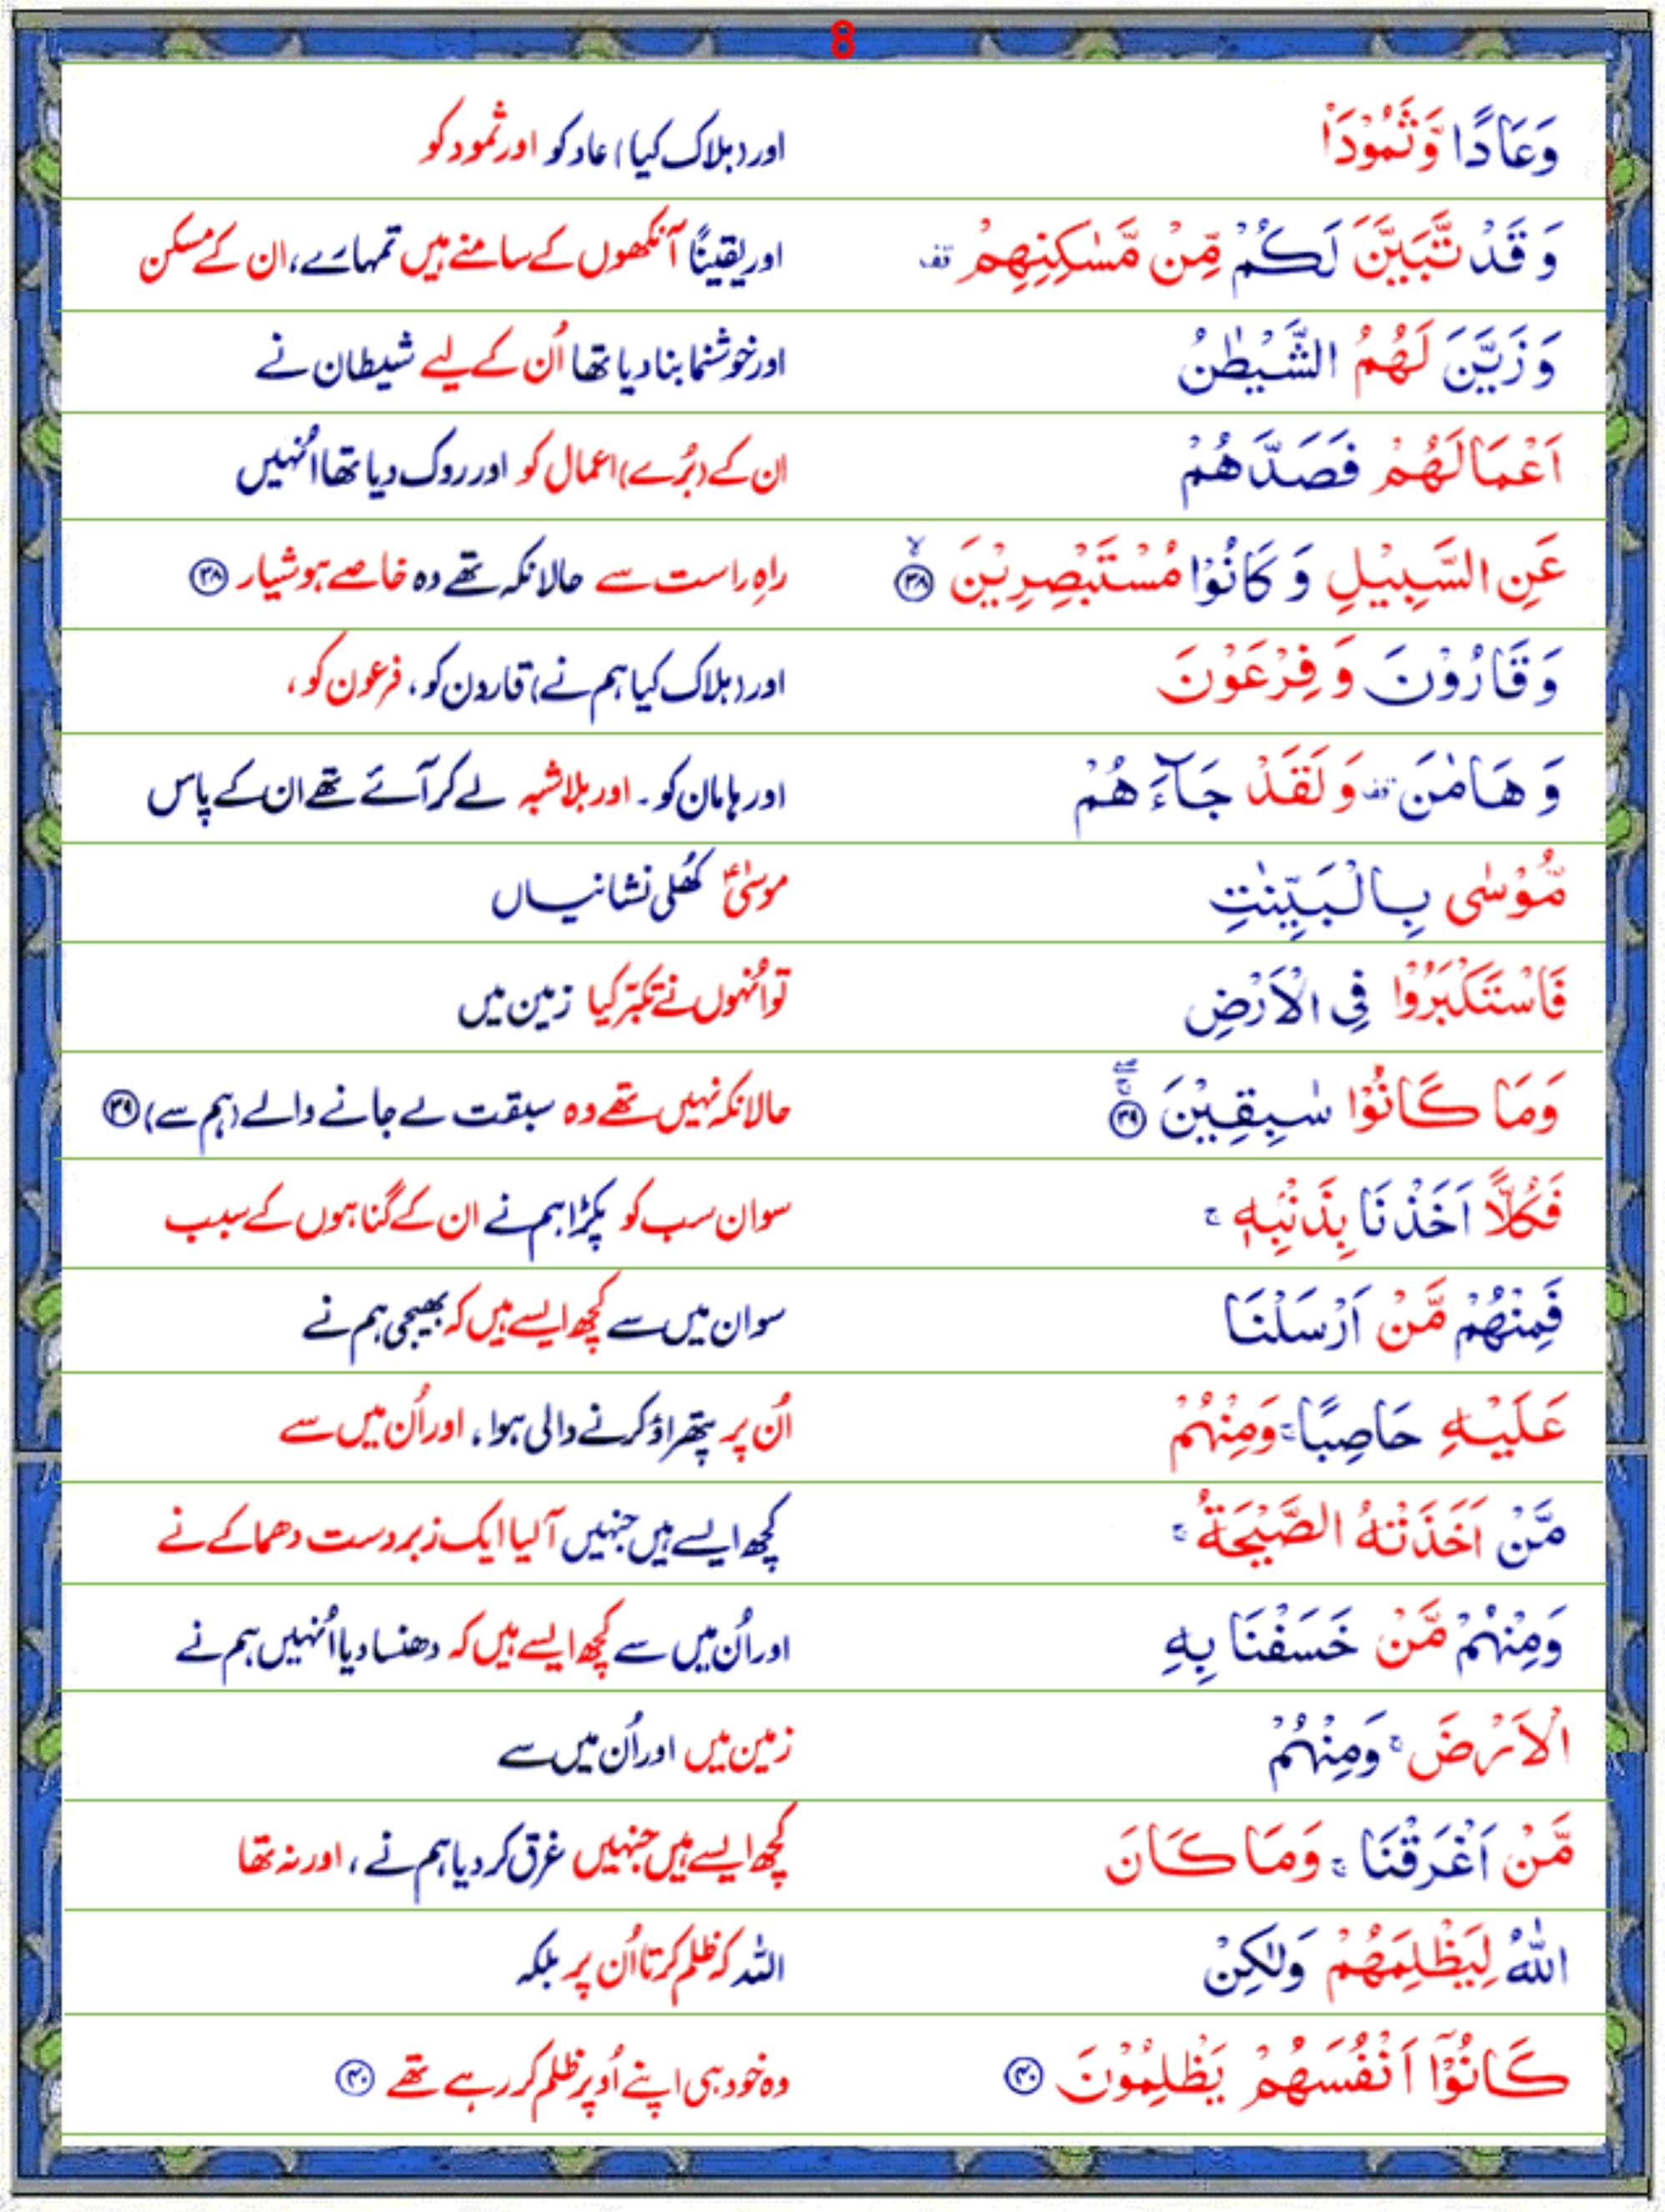 8
وَعَادًا وَّثَمُوۡدَا۠ اور (ہلاک کیا) عاد کو اور ثمود کو
وَ قَدۡ تَّبَيَّنَ لَـكُمۡ مِّنۡ مَّسٰكِنِهِمۡ ۖ اور یقیناً آنکھوں کے سامنے ہیں تمہارے، ان کے مسکن
وَ زَيَّنَ لَهُمُ الشَّيۡطٰنُ اور خوشنما بنا دیا تھا اُن کے لیے شیطان نے
اَعۡمَالَهُمۡ فَصَدَّهُمۡ ان کے (بُرے) اعمال کو اور روک دیا تھا اُنہیں
عَنِ السَّبِيۡلِ وَ كَانُوۡا مُسۡتَبۡصِرِيۡنَ ۙ‏ ﴿۳۸﴾ راہِ راست سے حالانکہ تھے وہ خاصے ہوشیار ﴿۳۸﴾
وَ قَارُوۡنَ وَ فِرۡعَوۡنَ اور (ہلاک کیا ہم نے) قارون کو، فرعون کو،
وَ هَامٰنَ ۖ وَلَقَدۡ جَآءَهُمۡ اور ہامان کو۔ اور بلاشبہ لے کر آئے تھے ان کے پاس
مُّوۡسٰى بِالۡبَيِّنٰتِ موسیٰؑ کھُلی نشانیاں
فَاسۡتَكۡبَرُوۡا فِى الۡاَرۡضِ تو اُنہوں نے تکبّر کیا زمین میں
وَمَا كَانُوۡا سٰبِقِيۡنَ ۚ ﴿۳۹﴾ حالانکہ نہیں تھے وہ سبقت لے جانے والے (ہم سے) ﴿۳۹﴾
فَكُلًّا اَخَذۡنَا بِذَنۡۢبِهٖ ۚ سو ان سب کو پکڑا ہم نے ان کے گناہوں کے سبب
فَمِنۡهُمۡ مَّنۡ اَرۡسَلۡنَا سو ان میں سے کچھ ایسے ہیں کہ بھیجی ہم نے
عَلَيۡهِ حَاصِبًا ۚ وَمِنۡهُمۡ اُن پر پتھراؤ کرنے والی ہوا، اور اُن میں سے
مَّنۡ اَخَذَتۡهُ الصَّيۡحَةُ ۚ کچھ ایسے ہیں جنہیں آ لیا ایک زبردست دھماکے نے
وَمِنۡهُمۡ مَّنۡ خَسَفۡنَا بِهِ اور اُن میں سے کچھ ایسے ہیں کہ دھنسا دیا اُنہیں ہم نے
الۡاَرۡضَ ۚ وَمِنۡهُمۡ زمین میں اور اُن میں سے
مَّنۡ اَغۡرَقۡنَا ۚ وَمَا كَانَ کچھ ایسے ہیں جنہیں غرق کر دیا ہم نے، اور نہ تھا
اللّٰهُ لِيَـظۡلِمَهُمۡ وَلٰـكِنۡ اللہ کہ ظلم کرتا اُن پر بلکہ
كَانُوۡۤا اَنۡفُسَهُمۡ يَظۡلِمُوۡنَ ﴿۴۰﴾ وہ خود ہی اپنے اُوپر ظلم کر رہے تھے ﴿۴۰﴾